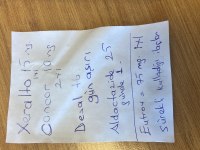 Xeralto 15 mg
1x1
Concor 10 mg
2x1
Desal
gün aşırı
Aldactazide 25
günde 1.
Eutirox = 75 mg 1x1
Sürekli kullandığı ilaçlar